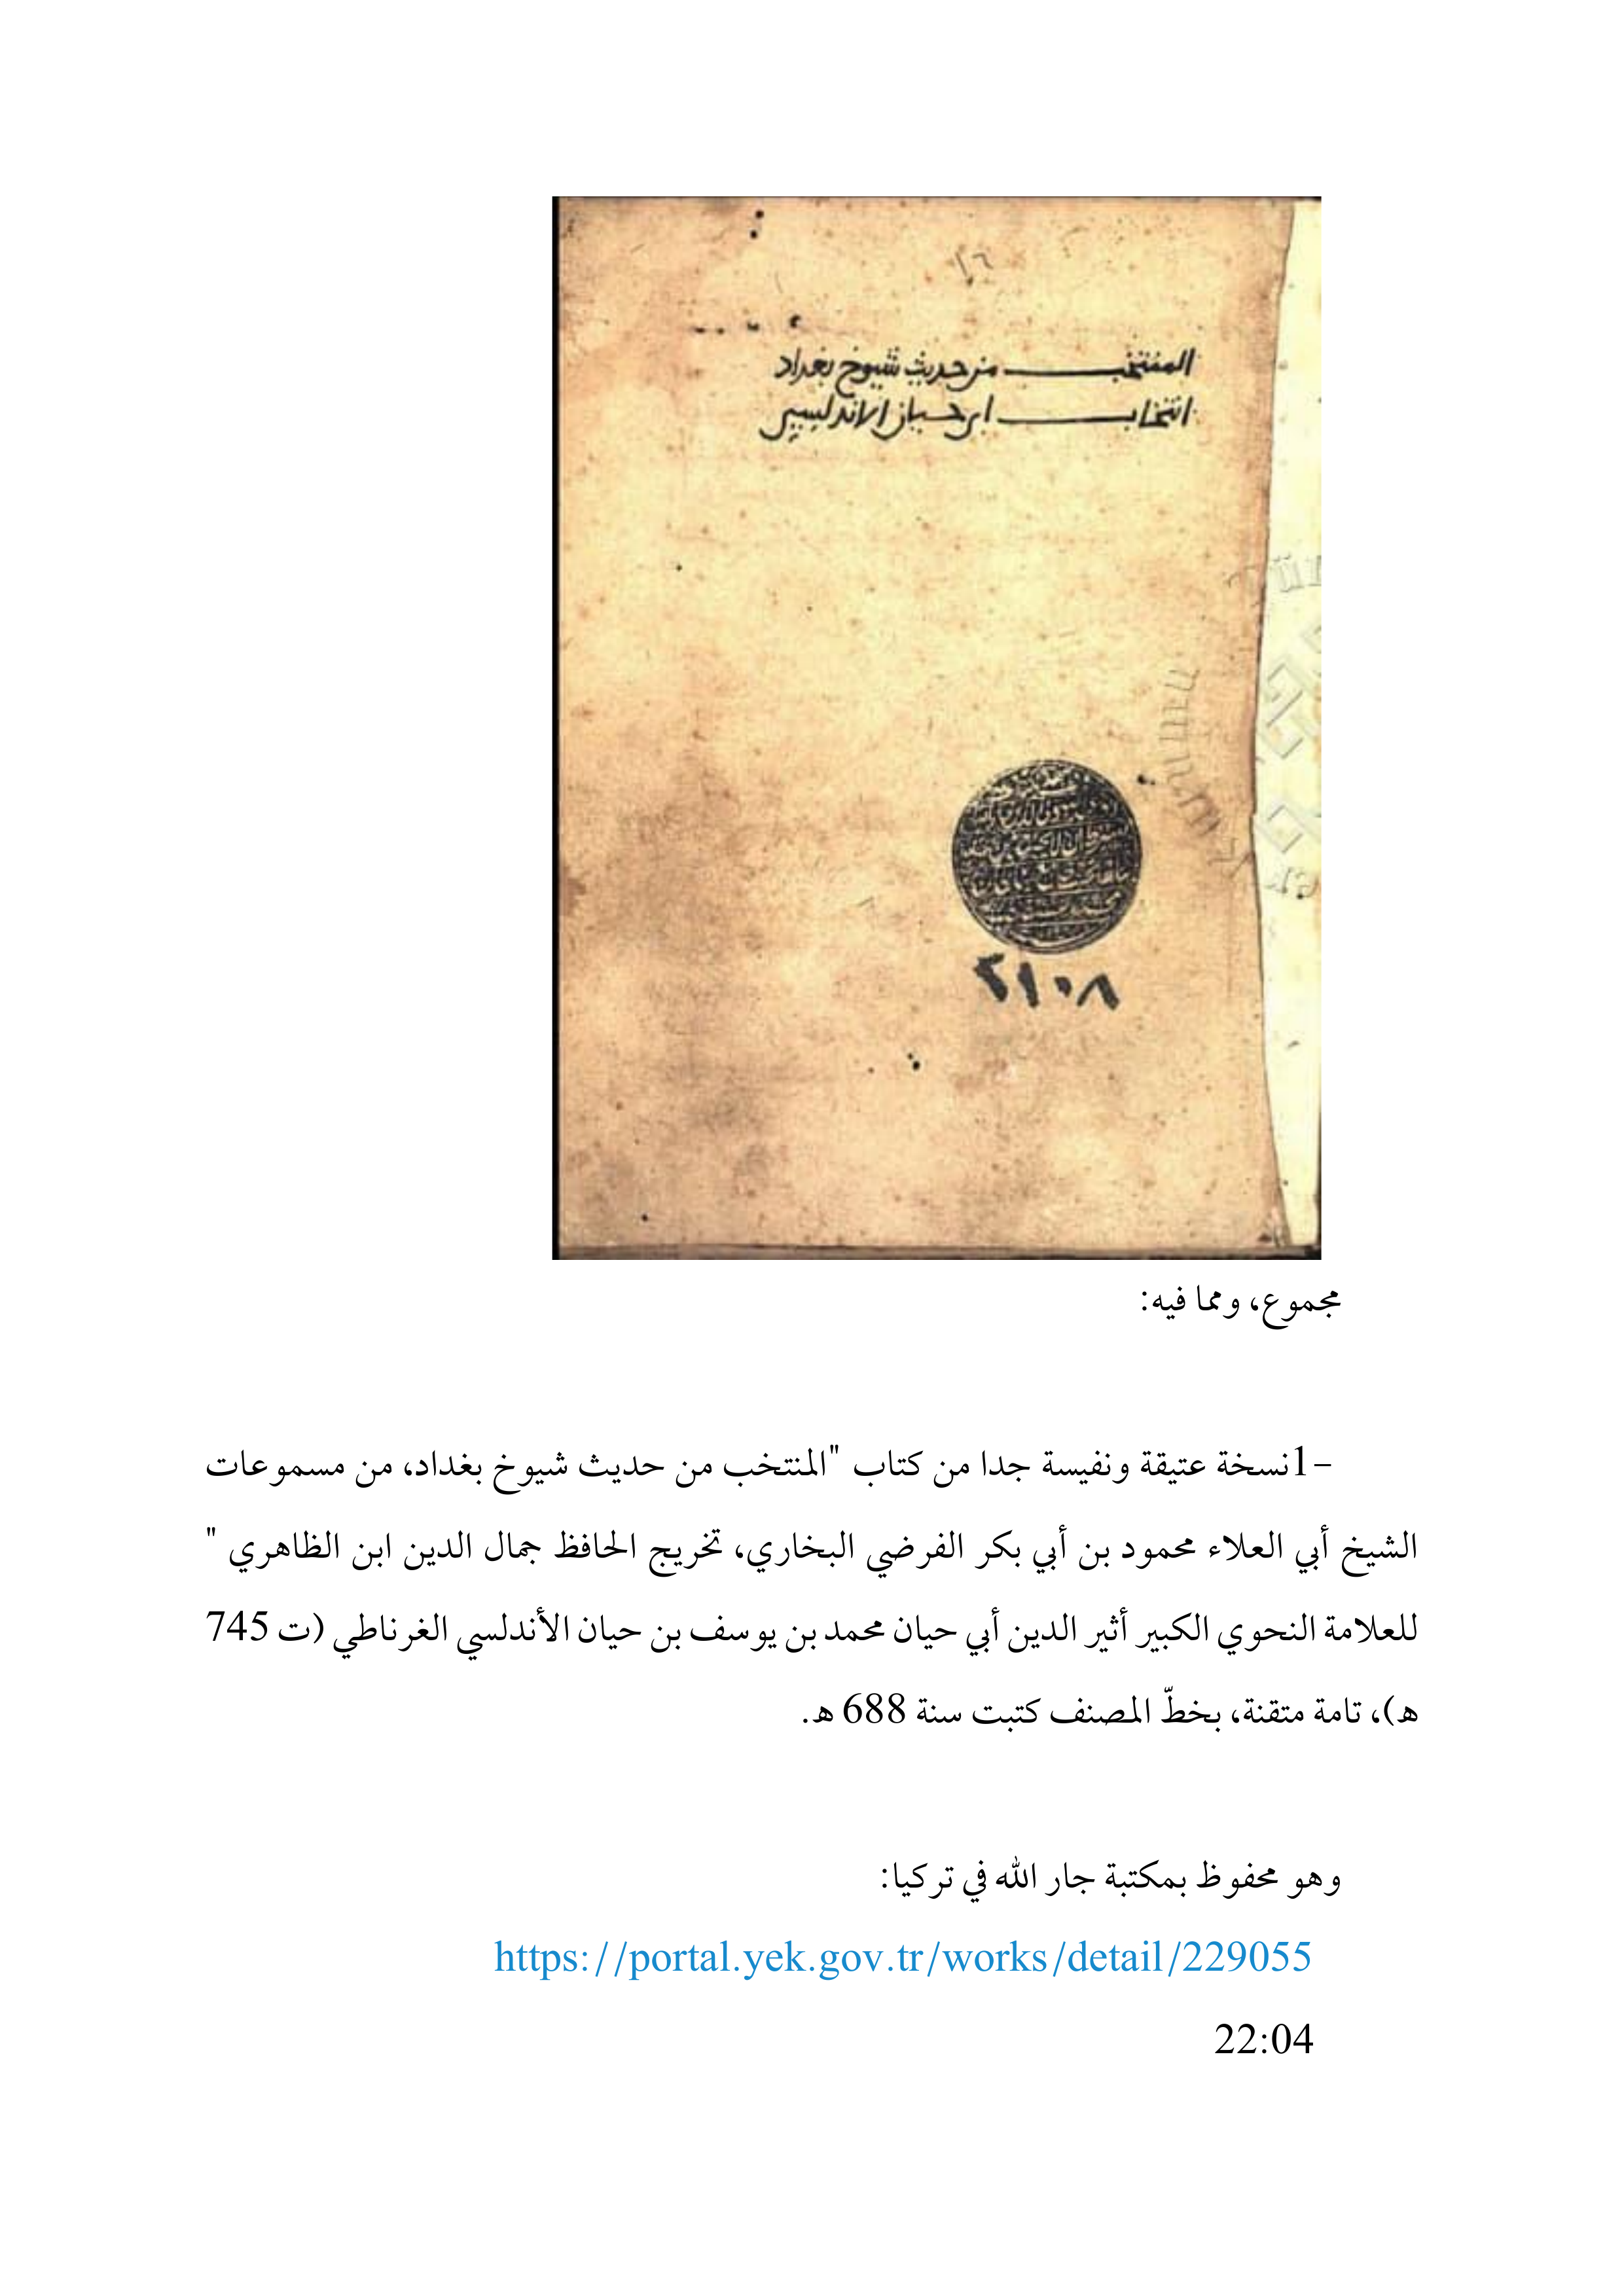 ١٦
المنتخب من حديث شيوخ بغداد
انتخاب ابي حيان الاندلسي
٢١٠٨
مجموع، ومما فيه:
-1نسخة عتيقة ونفيسة جدا من كتاب "المنتخب من حديث شيوخ بغداد، من مسموعات
الشيخ أبي العلاء محمود بن أبي بكر الفرضي البخاري، تخريج الحافظ جمال الدين ابن الظاهري "
للعلامة النحوي الكبير أثير الدين أبي حيان محمد بن يوسف بن حيان الأندلسي الغرناطي (ت 745
ه)، تامة متقنة، بخطّ المصنف كتبت سنة 688 ه.
وهو محفوظ بمكتبة جار الله في تركيا:
https://portal.yek.gov.tr/works/detail/229055
22:04